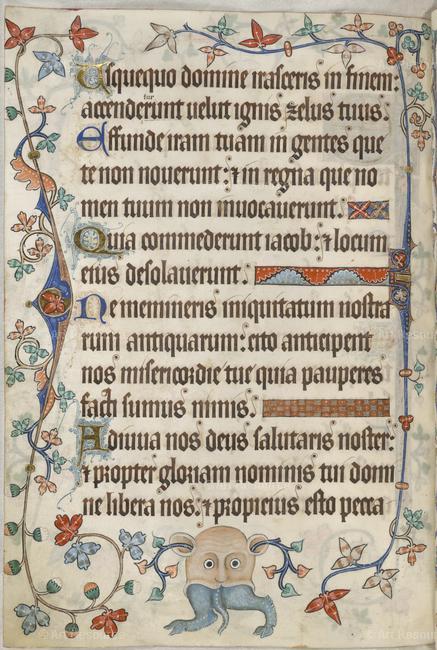 Usquequo domine irasceris in finem:
accenderunt velut ignis zelus tuus.
tur
Effunde iram tuam in gentes que
te non noverunt: ⁊ in regna que no
men tuum non invocaverunt.
Quia commederunt iacob: ⁊ locum
eius desolaverunt.
Ne memineris iniquitatum nostra
rum antiquarum: cito anticipent
nos misericordie tue quia pauperes
facti sumus nimis.
Adiuva nos deus salutaris noster:
⁊ propter gloriam nominis tui domi
ne libera nos: ⁊ propicius esto pecca